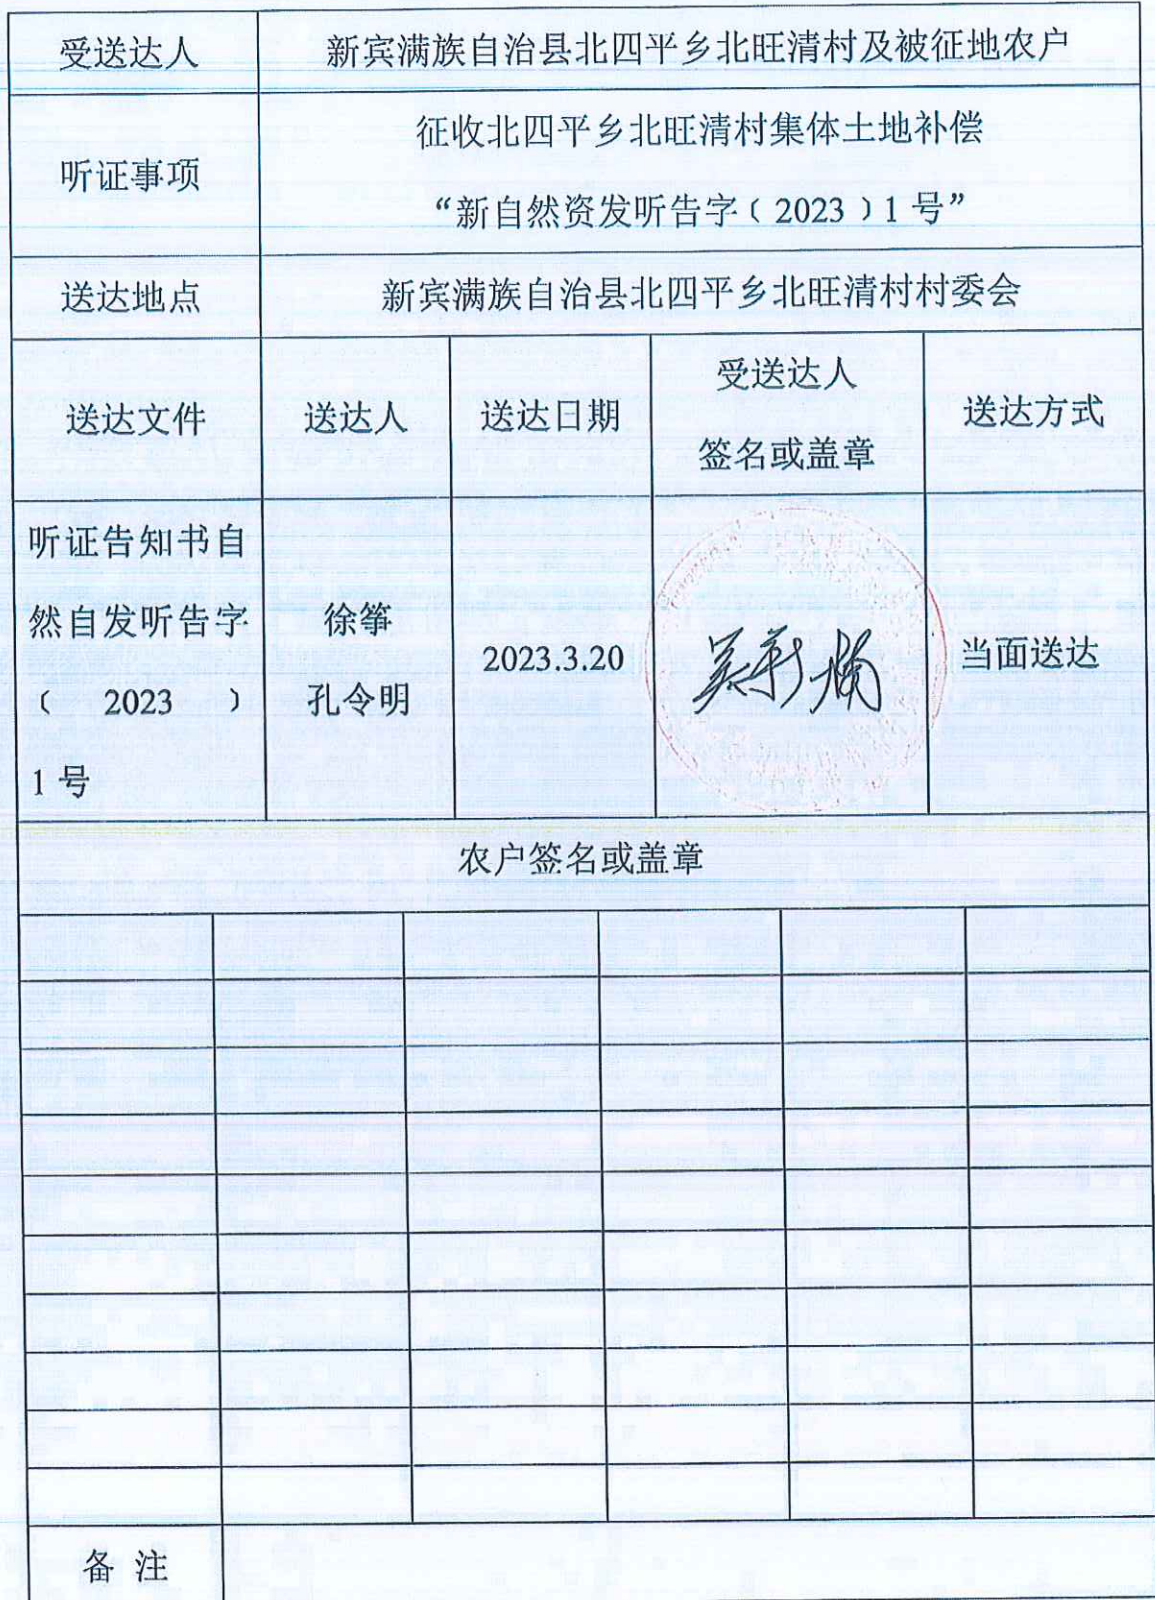 受送达人
新宾满族自治县北四平乡北旺清村及被征地农户
听证事项
征收北四平乡北旺清村集体土地补偿
“新自然资发听告字﹝2023﹞1号”
送达地点
新宾满族自治县北四平乡北旺清村村委会
送达文件
送达人
送达日期
受送达人
签名或盖章
送达方式
听证告知书自
然自发听告字
﹝ 2023 ﹞
1号
徐筝
孔令明
2023.3.20
当面送达
农户签名或盖章
备 注